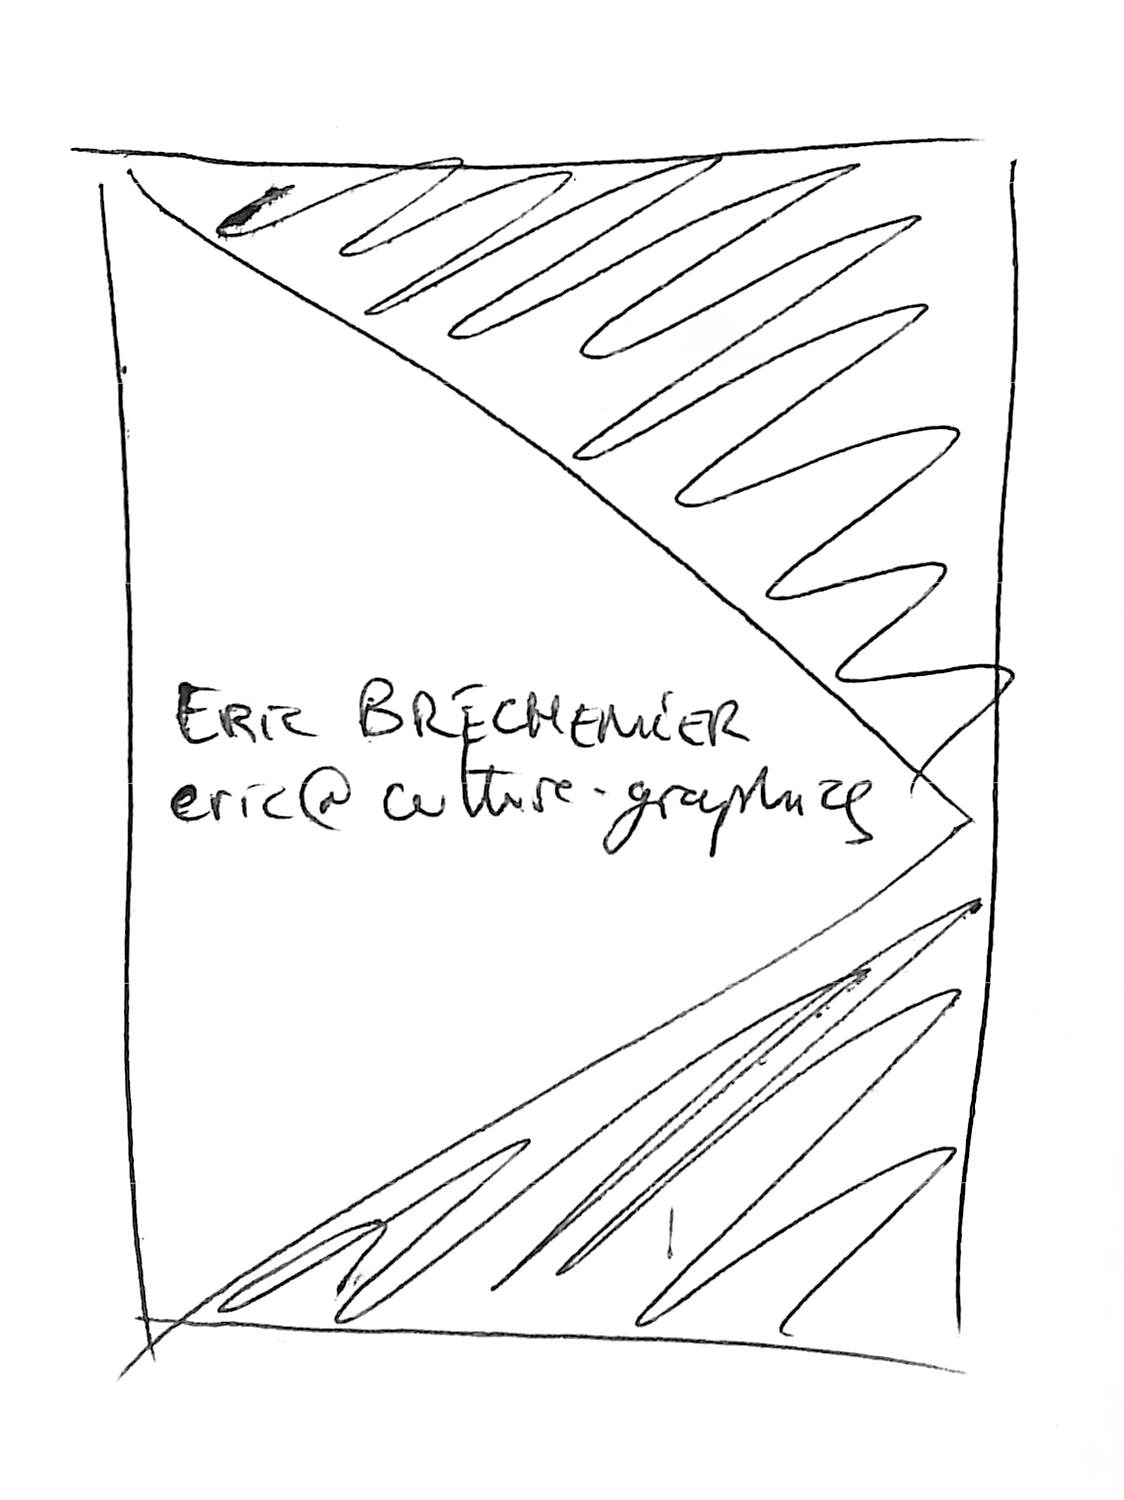 ERIC BRÉCHEMIER
eric@culture-graphics